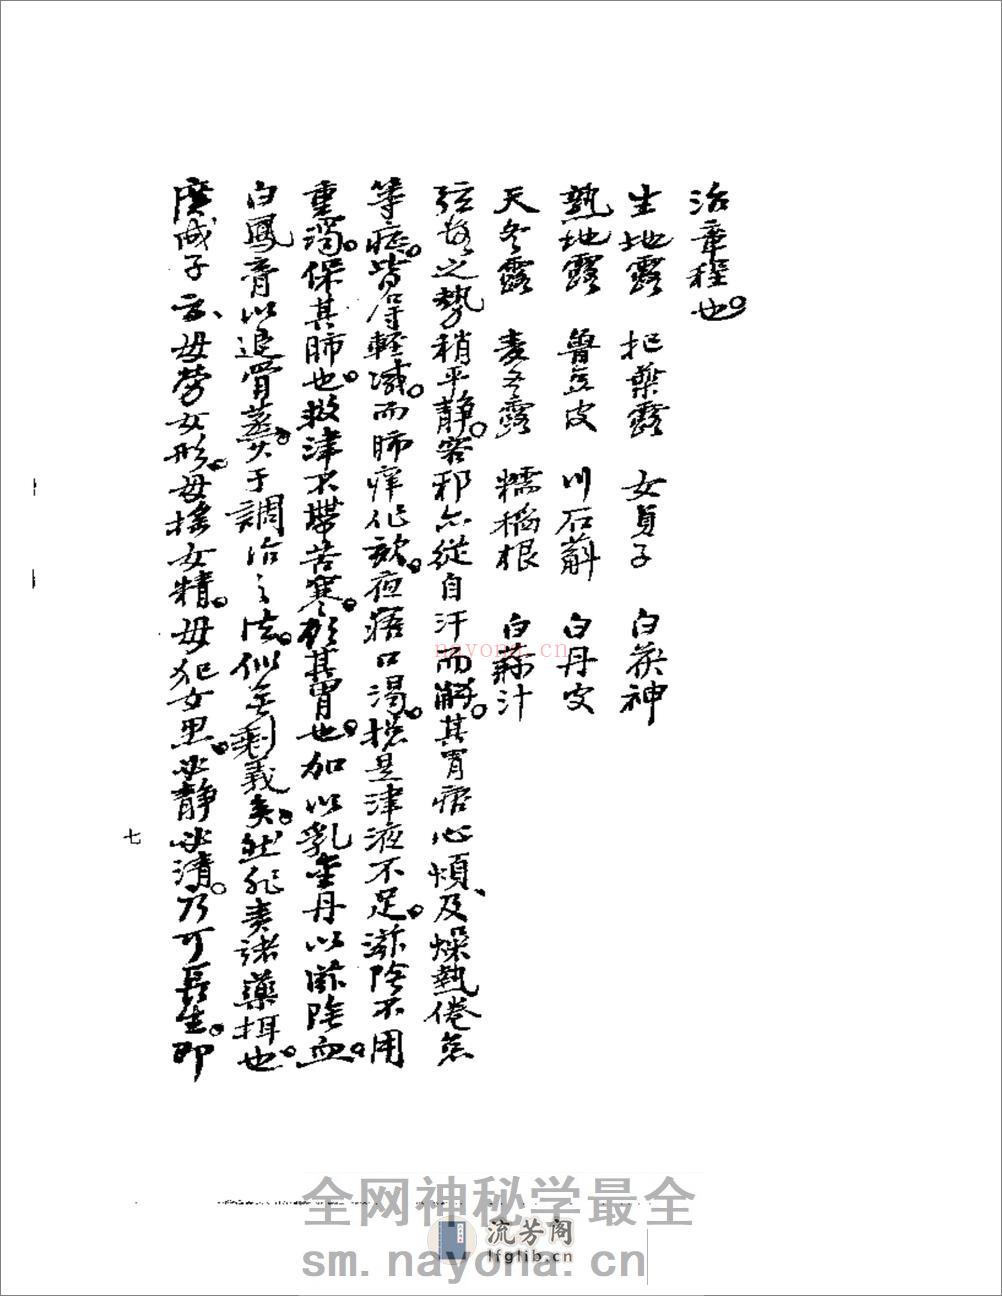 治章程也。
生地露　枇葉露　女貞子　白茯神
熟地露　魯豆皮　川石斛　白丹皮
天冬露　麦冬露　糯稻根　白蔴汁
弦数之勢稍平静。客邪亦從自汗而解。其胃痞心煩、及燥熱倦怠
等症。皆得輕減。而肺痒作欬。夜寤口渴。摠是津液不足。滋陰不用
重濁。保其肺也。救津不帶苦寒。顧其胃也。加以乳金丹以滋陰血。
白鳳膏以追骨蒸。于調治之法。似無剩義矣。然非責諸藥揖也。
廣成子云、毋勞女形。毋搖女精。毋犯女思。必静必清。乃可長生。即
七
nayona.cn
全网神秘学最全
流芳阁
lfglib.cn
sm.nayona.cn